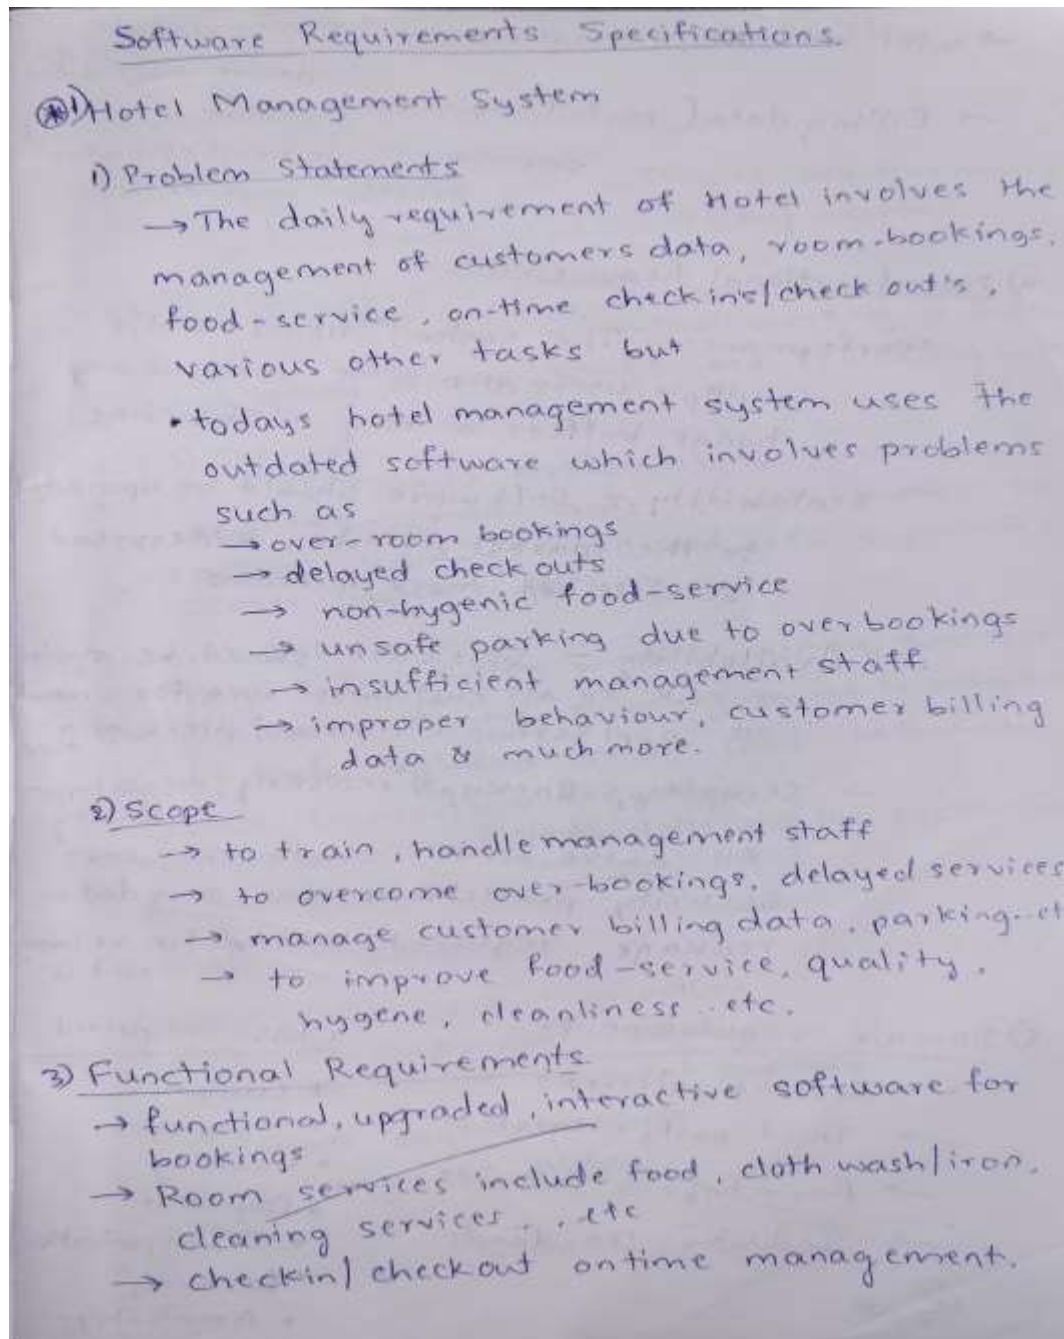 Software Requirements Specifications.
1) Hotel Management System
1) Problem Statements
→ The daily requirement of Hotel involves the
management of customers data, room-bookings,
food-service, on-time check in's/check out's,
various other tasks but
• todays hotel management system uses the
outdated software which involves problems
such as
→ over-room bookings
→ delayed check outs
→ non-hygenic food-service
→ unsafe parking due to over bookings
→ insufficient management staff
→ improper behaviour, customer billing
data & much more.
2) Scope
→ to train, handle management staff
→ to overcome over-bookings, delayed services
→ manage customer billing data, parking..et
→ to improve food-service, quality,
hygene, cleanliness etc.
3) Functional Requirements
→ functional, upgraded, interactive software for
bookings
→ Room services include food, cloth wash/iron,
cleaning services . . etc
→ checkin/checkout ontime management.